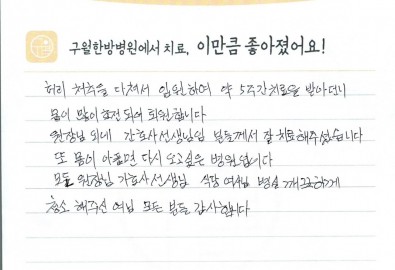 구월한방병원에서 치료, 이만큼 좋아졌어요!
허리 척추를 다쳐서 입원하여 약 5주간 치료를 받아더니
몸이 많이 호전 되어 퇴원합니다
원장님 외네 간호사선생님 분들께서 잘 치료해주셨습니다
또 몸이 아프면 다시 오고싶은 병원입니다
모든 원장님 간호사선생님 식당 여사님 병실 깨끗하게
청소 해주신 여님 모든 분들 감사합니다